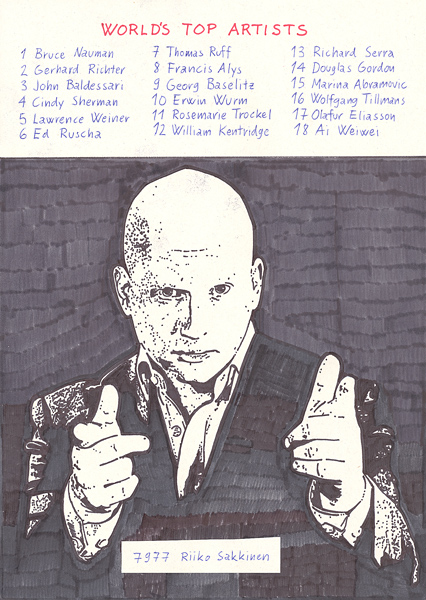 WORLD'S TOP ARTISTS
1 Bruce Nauman
2 Gerhard Richter
3 John Baldessari
4 Cindy Sherman
5 Lawrence Weiner
6 Ed Ruscha
7 Thomas Ruff
8 Francis Alys
9 Georg Baselitz
10 Erwin Wurm
11 Rosemarie Trockel
12 William Kentridge
13 Richard Serra
14 Douglas Gordon
15 Marina Abramovic
16 Wolfgang Tillmans
17 Olafur Eliasson
18 Ai Weiwei
7977 Riiko Sakkinen